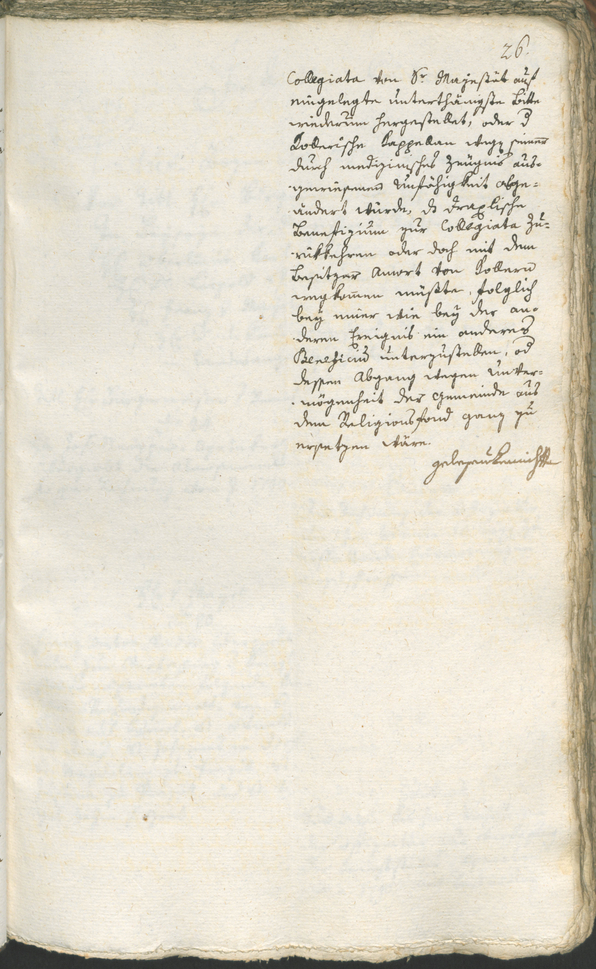 26.
Collegiata von Sr Majestät auf
eingelegte unterthänigste Bitte
wiederum hergestellet, oder d
Kollerische Kappellan wegen seiner
durch medizinisches Zeugnis aus-
gewiesenen Unfähigkeit abge-
ändert würde, ds Draxlische
Benefizium zur Collegiata zu-
rükkehren oder doch mit dem
Besitzer Amort von Kollern
wegkommen müßte, folglich
bey einer wie bey der an-
deren Ereignis ein anderes
Beneficiu unterzustellen, od
dessen Abgang wegen Unver-
mögenheit der Gemeinde aus
dem Religionsfond ganz zu
ersetzen wäre.